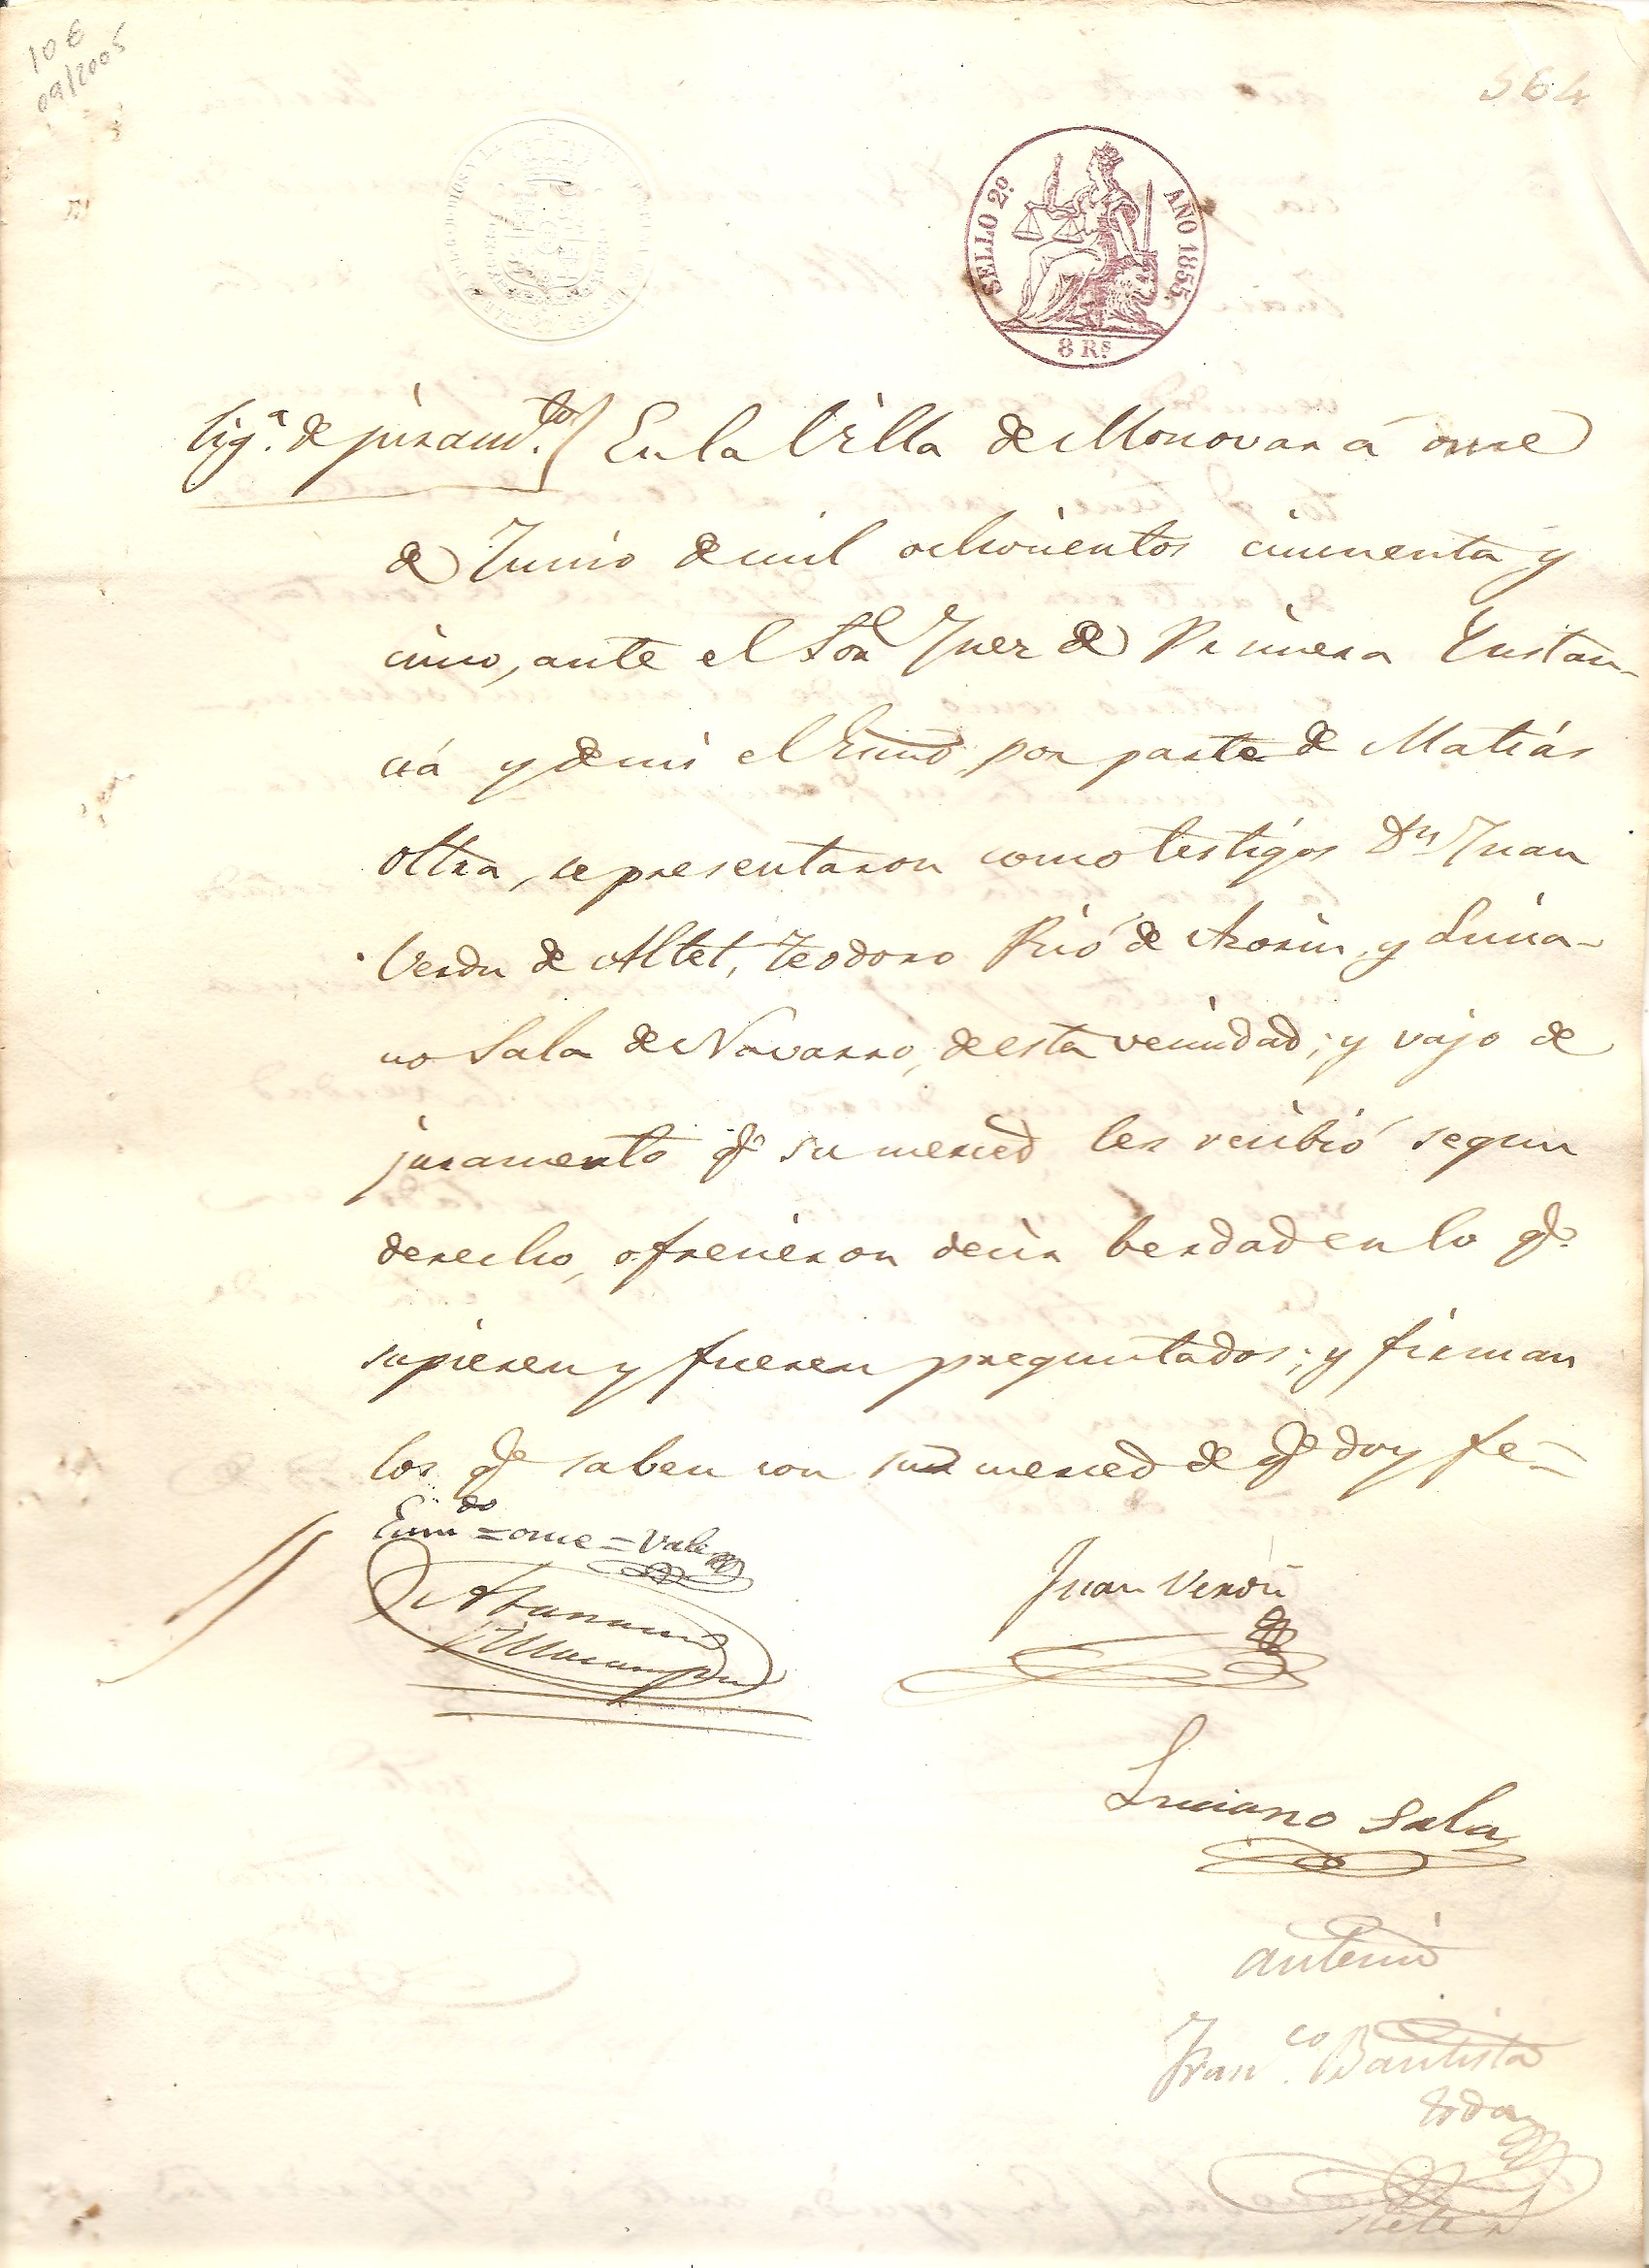 10 €
09/2005
564
SELLO 2º
AÑO 1855.
8 Rs
En la Villa de Monovar á onse
de Junio de mil ochosientos cincuenta y
cinco, ante el Sor Juez de Primera Instan-
cia y de mi el Escno por parte de Matias
Oltra, se presentaron como testigos Dn Juan
Verdu de Altet, Teodoro Picó de Azorin, y Lucia-
no Sala de Navarro, de esta vecindad; y vajo de
juramento qe su merced les recibió segun
derecho, ofrecieron decir berdad en lo qe
supieren y fueren preguntados; y firman
los qe saben con su merced de qe doy fe=
Enmdo = onse = Vale
Juan Verdú
Luciano Sala
Antemi
Franco Bautista